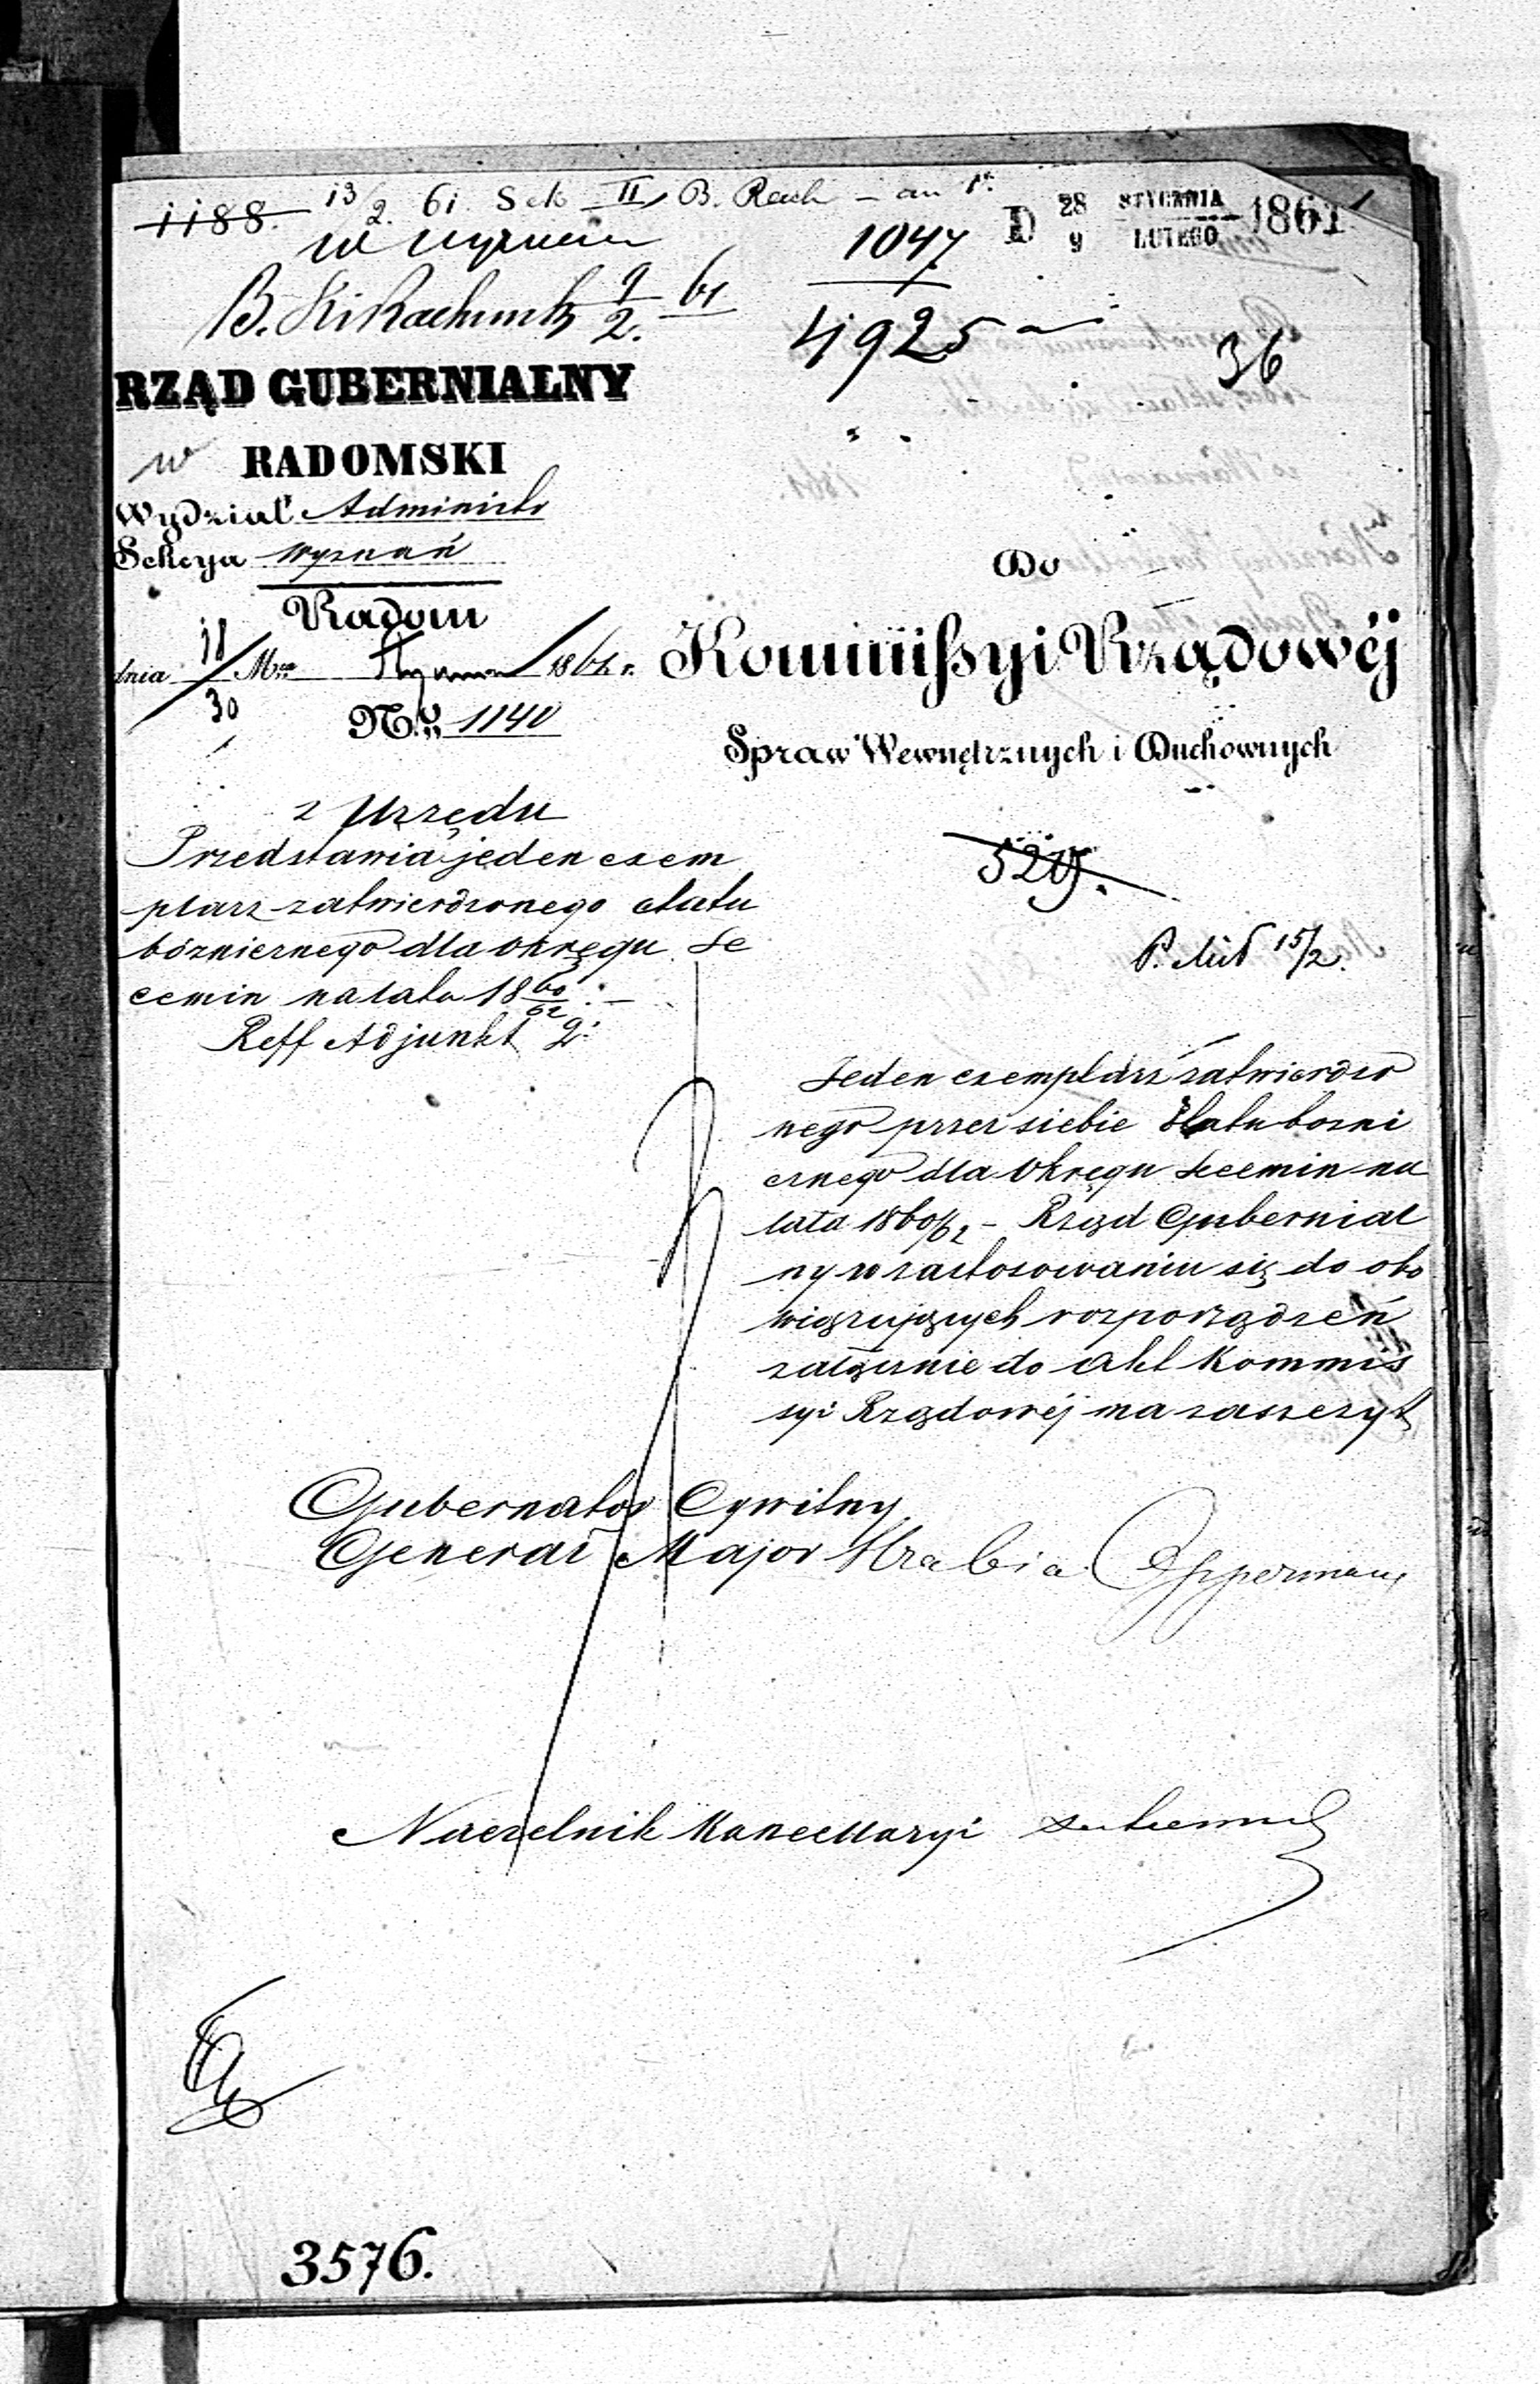 1188. 13/2. 61 Sek II B. Rach
D 28/9 STYCZNIA/LUTEGO 1861
1047
B. 9/2. 61
4925
36
RZĄD GUBERNIALNY
w RADOMSKI
Wydział Administr
Sekcya Wyznań
Radom
dnia 18/30 Mca Stycznia 1861 r.
No. 1140
Do
Kommissyi Rządowéj
Spraw Wewnętrznych i Duchownych
z Urzędu
Przedstawia jeden exem
plarz zatwierdzonego etatu
bóżnicznego dla Okręgu Se
cemin na lata 18 60/62 . –
Reff Adjunkt 2:
P. 15/2.
Jeden exemplarz zatwierdzo
nego przez siebie Etatu bozni
cznego dla Okręgu Secemin na
lata 1860/62 – Rząd Gubernial
ny w zastosowaniu się do obo
wiązujących rozporządzeń
załącznie do Akt Kommis
syi Rządowéj ma zaszczyt
Gubernator Cywilny
Generał Major Hrabia Opperman
Naczelnik Kancellaryi
3576.